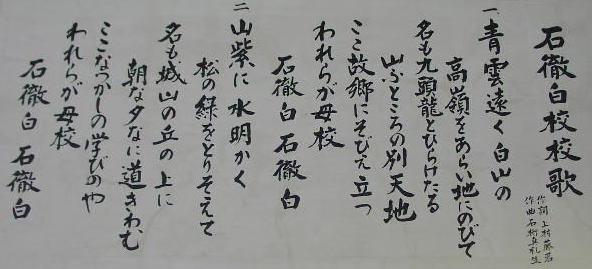 石徹白校校歌
作詞 上村藤若
作曲 石桁真礼生
一、青雲遠く 白山の
高嶺をあらい地にのびて
名も九頭龍とひらけたる
山ぶところの別天地
ここ故郷にそびえ立つ
われらが母校
石徹白 石徹白
二 山紫に 水明かく
松の緑をとりそえて
名も城山の丘の上に
朝な夕なに道きわむ
ここなつかしの学びのや
われらが母校
石徹白 石徹白